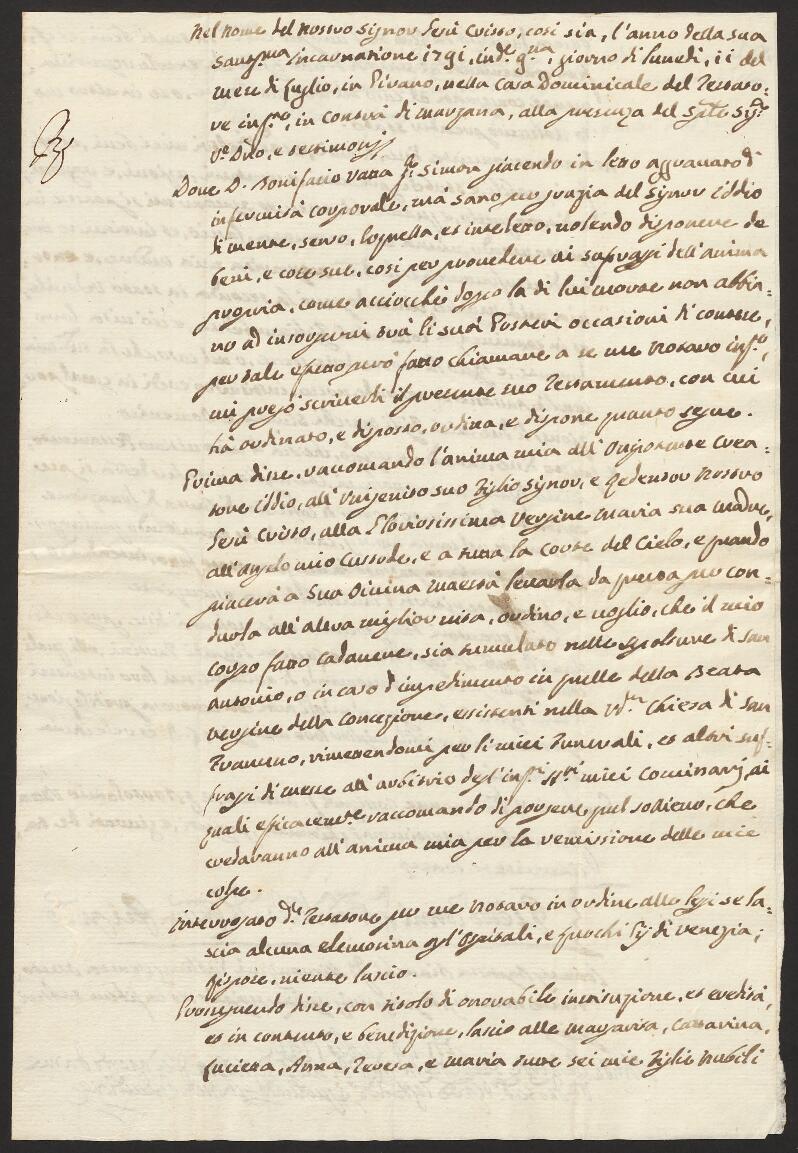 Nel nome del nostro Signor Gesù Cristo, così sia, l'anno della sua
Santma incarnatione 1791, inde 9na, giorno di lunedì, 11 del
mese di luglio, in Pirano, nella Casa Dominicale del Testato-
re infto, in contrà di Marzana, alla presenza del Spte Sigr
Ve Dno, e testimonj
Dove D. Bonifacio Vatta qm Simon giacendo in letto aggravato d'
infermità corporale, mà sano per grazia del Signor Iddio
di mente, senso, loquella, et inteletto, volendo disponere de
beni, e cose sue, così per provedere ai suffragj dell'anima
propria, come acciocchè dopo la di lui morte non abbia-
no ad insorgervi trà li suoi Posteri occasioni di contese,
per tale effetto però fatto chiamare a se me Nodaro infto,
mi pregò scriverli il presente suo Testamento, con cui
hà ordinato, e disposto, ordina, e dispone quanto segue.
Prima disse, raccomando l'anima mia all'Onipotente Crea-
tore Iddio, all'Unigenito suo Figlio Signor, e Redentor nostro
Gesù Cristo, alla Gloriosissima Vergine Maria sua Madre,
all'Angelo mio Custode, e a tutta la corte del Cielo, e quando
piacerà a Sua Divina Maestà levarla da questa per con-
durla all'altra miglior vita, ordino, e voglio, che il mio
corpo fatto cadavere, sia tumulato nelle sepolture di San
Antonio, o in caso d'impedimento in quelle della Beata
Vergine della Concezione, esistenti nella Vda Chiesa di San
Francesco, rimettendomi per li miei Funerali, et altri suf-
fragj di messe all'arbitrio degl'infti SSri miei Comissarj, ai
quali efficacemte raccomando di porgere quel sollievo, che
crederanno all'anima mia per la remissione delle mie
colpe.
Interrogato do Testatore per me Nodaro in ordine alle leggi se la-
scia alcuna elemosina agl'Ospitali, e luochi Pij di Venezia,
rispose, niente lascio.
Proseguendo disse, con titolo di onorabile instituzione, et eredità,
et in contento, e benedizione, lascio alle Margarita, Cattarina,
Lucietta, Anna, Teresa, e Maria tutte sei mie Figlie Nubili